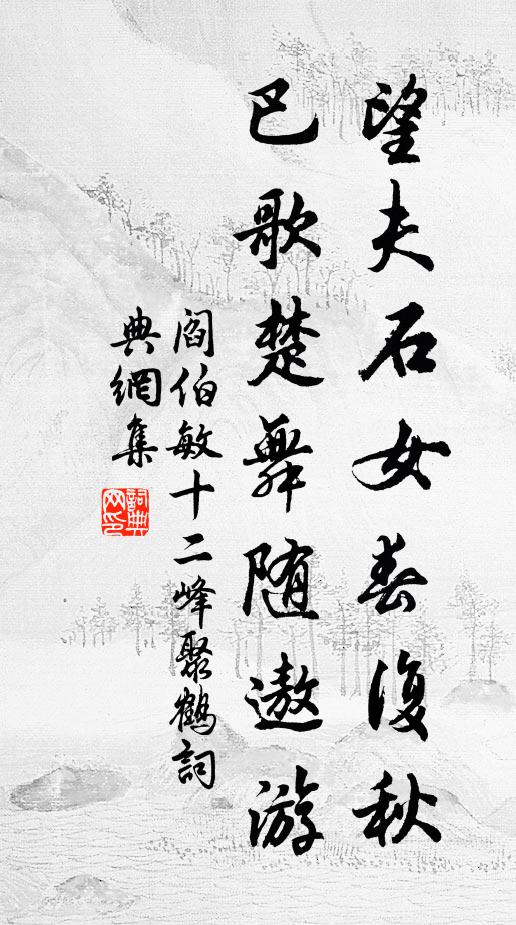 望夫石女春復秋
巴歌楚舞随遨游
閻伯敏十二峰聚鶴詞
典網集
詞典网印